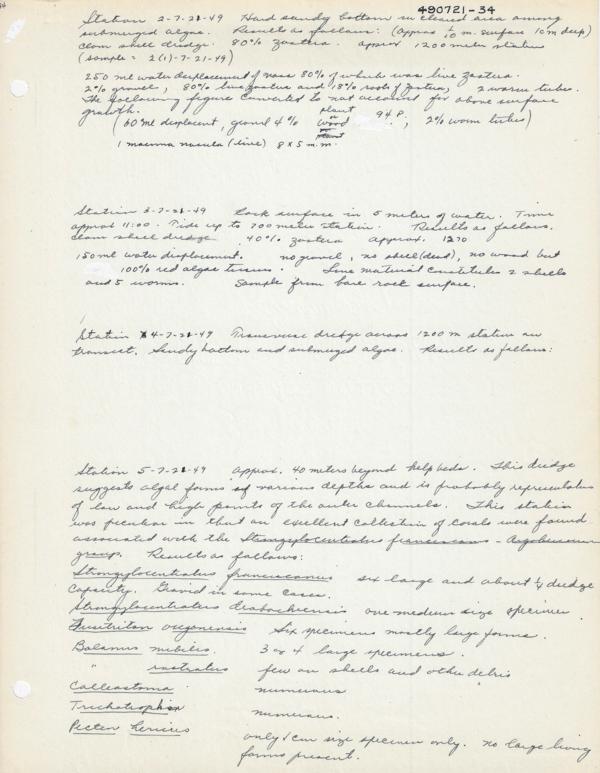 490721-34
Station 2-7-21-49 Hard sandy bottom in cleared area among
submerged algae. Results as follows: (approx 1/10 m. surface 10 m deep)
clam shell dredge. 80% zostera. approx 1200 meter station
(sample = 2(1)-7-21-49)
250 ml water displacement of mass 80% of which was live zostera.
2% gravel, 80% live zostera and 18% roots of zostera, 2 worm tubes.
The following figure converted to not account for above surface
growth.
(60 ml displacent, gravel 4% plant or wood 94%, 2% worm tubes)
1 macoma nasuta (live) 8 x 5 m.m.
Station 3-7-21-49 Rock surface in 5 meters of water. Time
approx 11:00. Tide up to 700 meter station. Results as follows.
clam shell dredge 40% zostera approx. 1270
150 ml water displacement. no gravel, no shell (dead), no wood but
100% red algae tissues. Live material constitutes 2 shells
and 5 worms. Sample from bare rock surface.
Station 4-7-21-49 Transverse dredge across 1200 m station on
transect. Sandy bottom and submerged algae. Results as follows:
Station 5-7-21-49 Approx. 40 meters beyond kelp beds. This dredge
suggests algal forms of various depths and is probably representative
of low and high points of the outer channels. This station
was peculiar in that an excellent collection of corals were found
associated with the Strongylocentrotus franciscanus - Argobuccinum
group. Results as follows:
Strongylocentrotus franciscanus six large and about 1/4 dredge
capacity. Gravid in some cases.
Strongylocentrotus drobachiensis one medium size specimen.
Fusitriton oregonensis Six specimens mostly large forms.
Balanus nubilis. 3 or 4 large specimens.
" rostratus few on shells and other debris
Calliostoma numerous
Trichotrophia numerous.
Pecten hericius only 1 cm size specimen only. no large living
forms present.